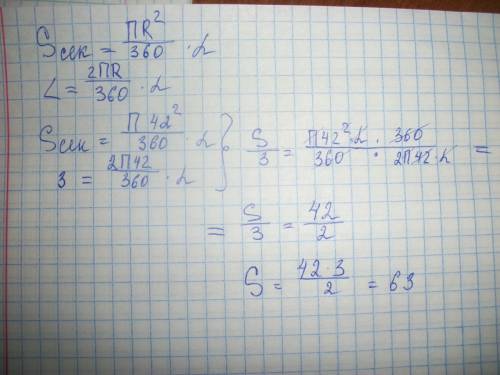 Sсек = ПR²/360 · α
L = 2ПR/360 · α
Sсек = П42²/360 · α
3 = 2П42/360 · α
S/3 = П42²·α/360 · 360/2П42·α =
= S/3 = 42/2
S = 42·3/2 = 63